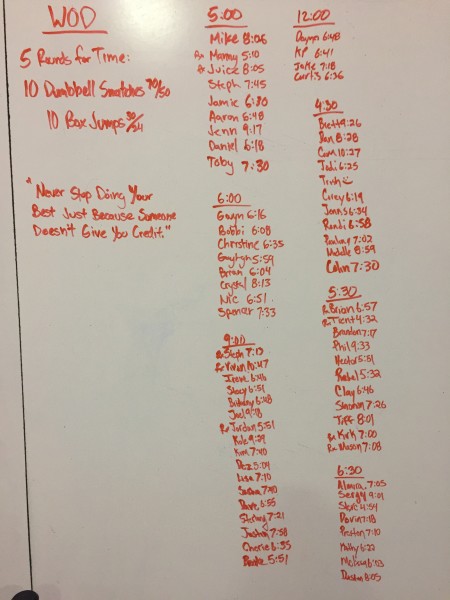 WOD
5 Rounds for Time:
10 Dumbbell Snatches 70/50
10 Box Jumps 30/24
"Never Stop Doing Your
Best Just Because Someone
Doesn't Give You Credit."
5:00
Mike 8:06
Rx Manny 5:10
Rx Juice 8:05
Steph 7:45
Jamie 6:30
Aaron 6:48
Jenn 9:17
Daniel 6:18
Toby 7:30
6:00
Gwyn 6:16
Bobbi 6:08
Christine 6:35
5:59
Brian 6:04
Crystal 8:13
Nic 6:51
Spencer 7:33
9:00
Rx Steph 7:13
Rx Vivian 10:47
Irene 6:46
Stacy 6:51
Brittany 6:48
Joel 9:48
Rx Jordan 5:51
Kyle 9:29
Kim 7:40
Dez 5:04
Lisa 7:10
Susan 7:40
Dave 6:55
7:21
Justin 7:58
Cherie 6:35
5:51
12:00
6:48
KP 6:41
Jake 7:18
Curtis 6:36
4:30
Brett 9:26
Ben 8:28
Cam 10:27
Jodi 6:25
Trish
Corey 6:19
Jenns 6:34
Randi 6:58
7:02
Michelle 8:59
Colin 7:30
5:30
Rx Brian 6:57
Rx Trent 4:32
Brandon 7:17
Phil 9:33
Hector 5:51
Rachel 5:32
Clay 6:46
Shannon 7:26
Tiff 8:01
Rx Kirk 7:00
Rx Mason 7:08
6:30
7:05
Sergey 9:01
4:54
Davin 7:18
Preston 7:10
Kathy 6:22
6:03
Dustin 8:05